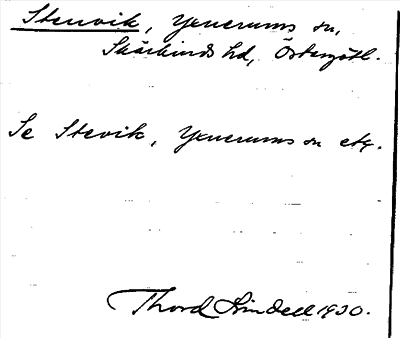 Stenvik, Yxnerums sn,
Skärkinds hd, Östergötl.
Se Stevik, Yxnerums sn etc.
Thord Lindell 1930.